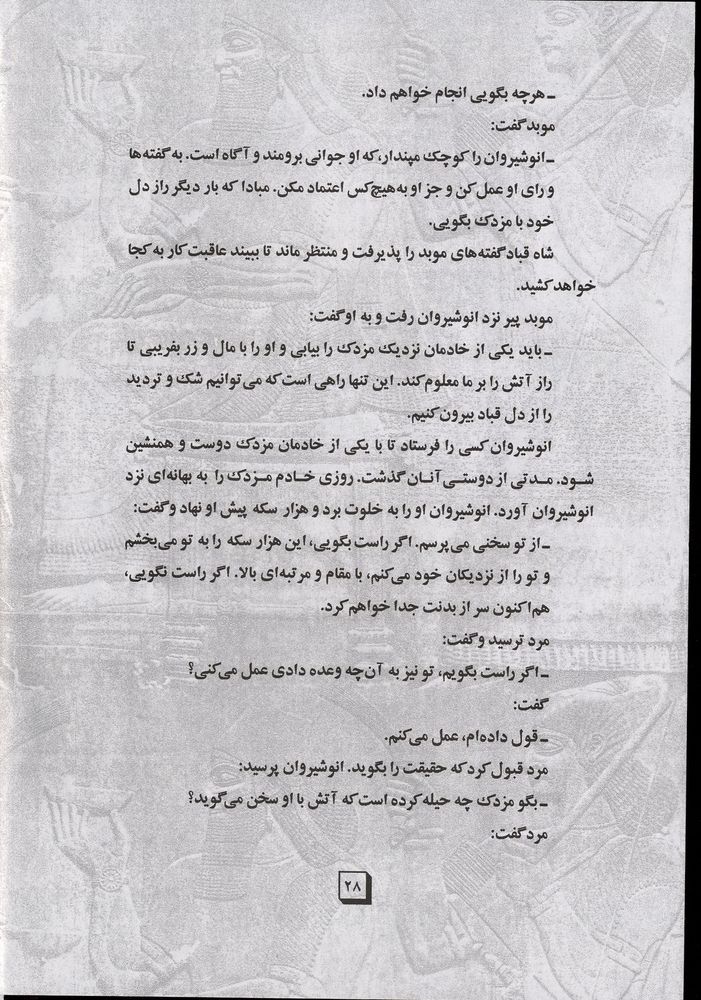 ـ هرچه بگویی انجام خواهم داد.
موبد گفت:
ـ انوشیروان را کوچک مپندار، که او جوانی برومند و آگاه است. به گفته‌ها
و رای او عمل کن و جز او به هیچ‌کس اعتماد مکن. مبادا که بار دیگر راز دل
خود با مزدک بگویی.
شاه قباد گفته‌های موبد را پذیرفت و منتظر ماند تا ببیند عاقبت کار به کجا
خواهد کشید.
موبد پیر نزد انوشیروان رفت و به او گفت:
ـ باید یکی از خادمان نزدیک مزدک را بیابی و او را با مال و زر بفریبی تا
راز آتش را بر ما معلوم کند. این تنها راهی است که می‌توانیم شک و تردید
را از دل قباد بیرون کنیم.
انوشیروان کسی را فرستاد تا با یکی از خادمان مزدک دوست و همنشین
شود. مدتی از دوستی آنان گذشت. روزی خادم مزدک را به بهانه‌ای نزد
انوشیروان آورد. انوشیروان او را به خلوت برد و هزار سکه پیش او نهاد و گفت:
ـ از تو سخنی می‌پرسم. اگر راست بگویی، این هزار سکه را به تو می‌بخشم
و تو را از نزدیکان خود می‌کنم، با مقام و مرتبه‌ای بالا. اگر راست نگویی،
هم‌اکنون سر از بدنت جدا خواهم کرد.
مرد ترسید و گفت:
ـ اگر راست بگویم، تو نیز به آن‌چه وعده دادی عمل می‌کنی؟
گفت:
ـ قول داده‌ام، عمل می‌کنم.
مرد قبول کرد که حقیقت را بگوید. انوشیروان پرسید:
ـ بگو مزدک چه حیله کرده است که آتش با او سخن می‌گوید؟
مرد گفت:
۲۸